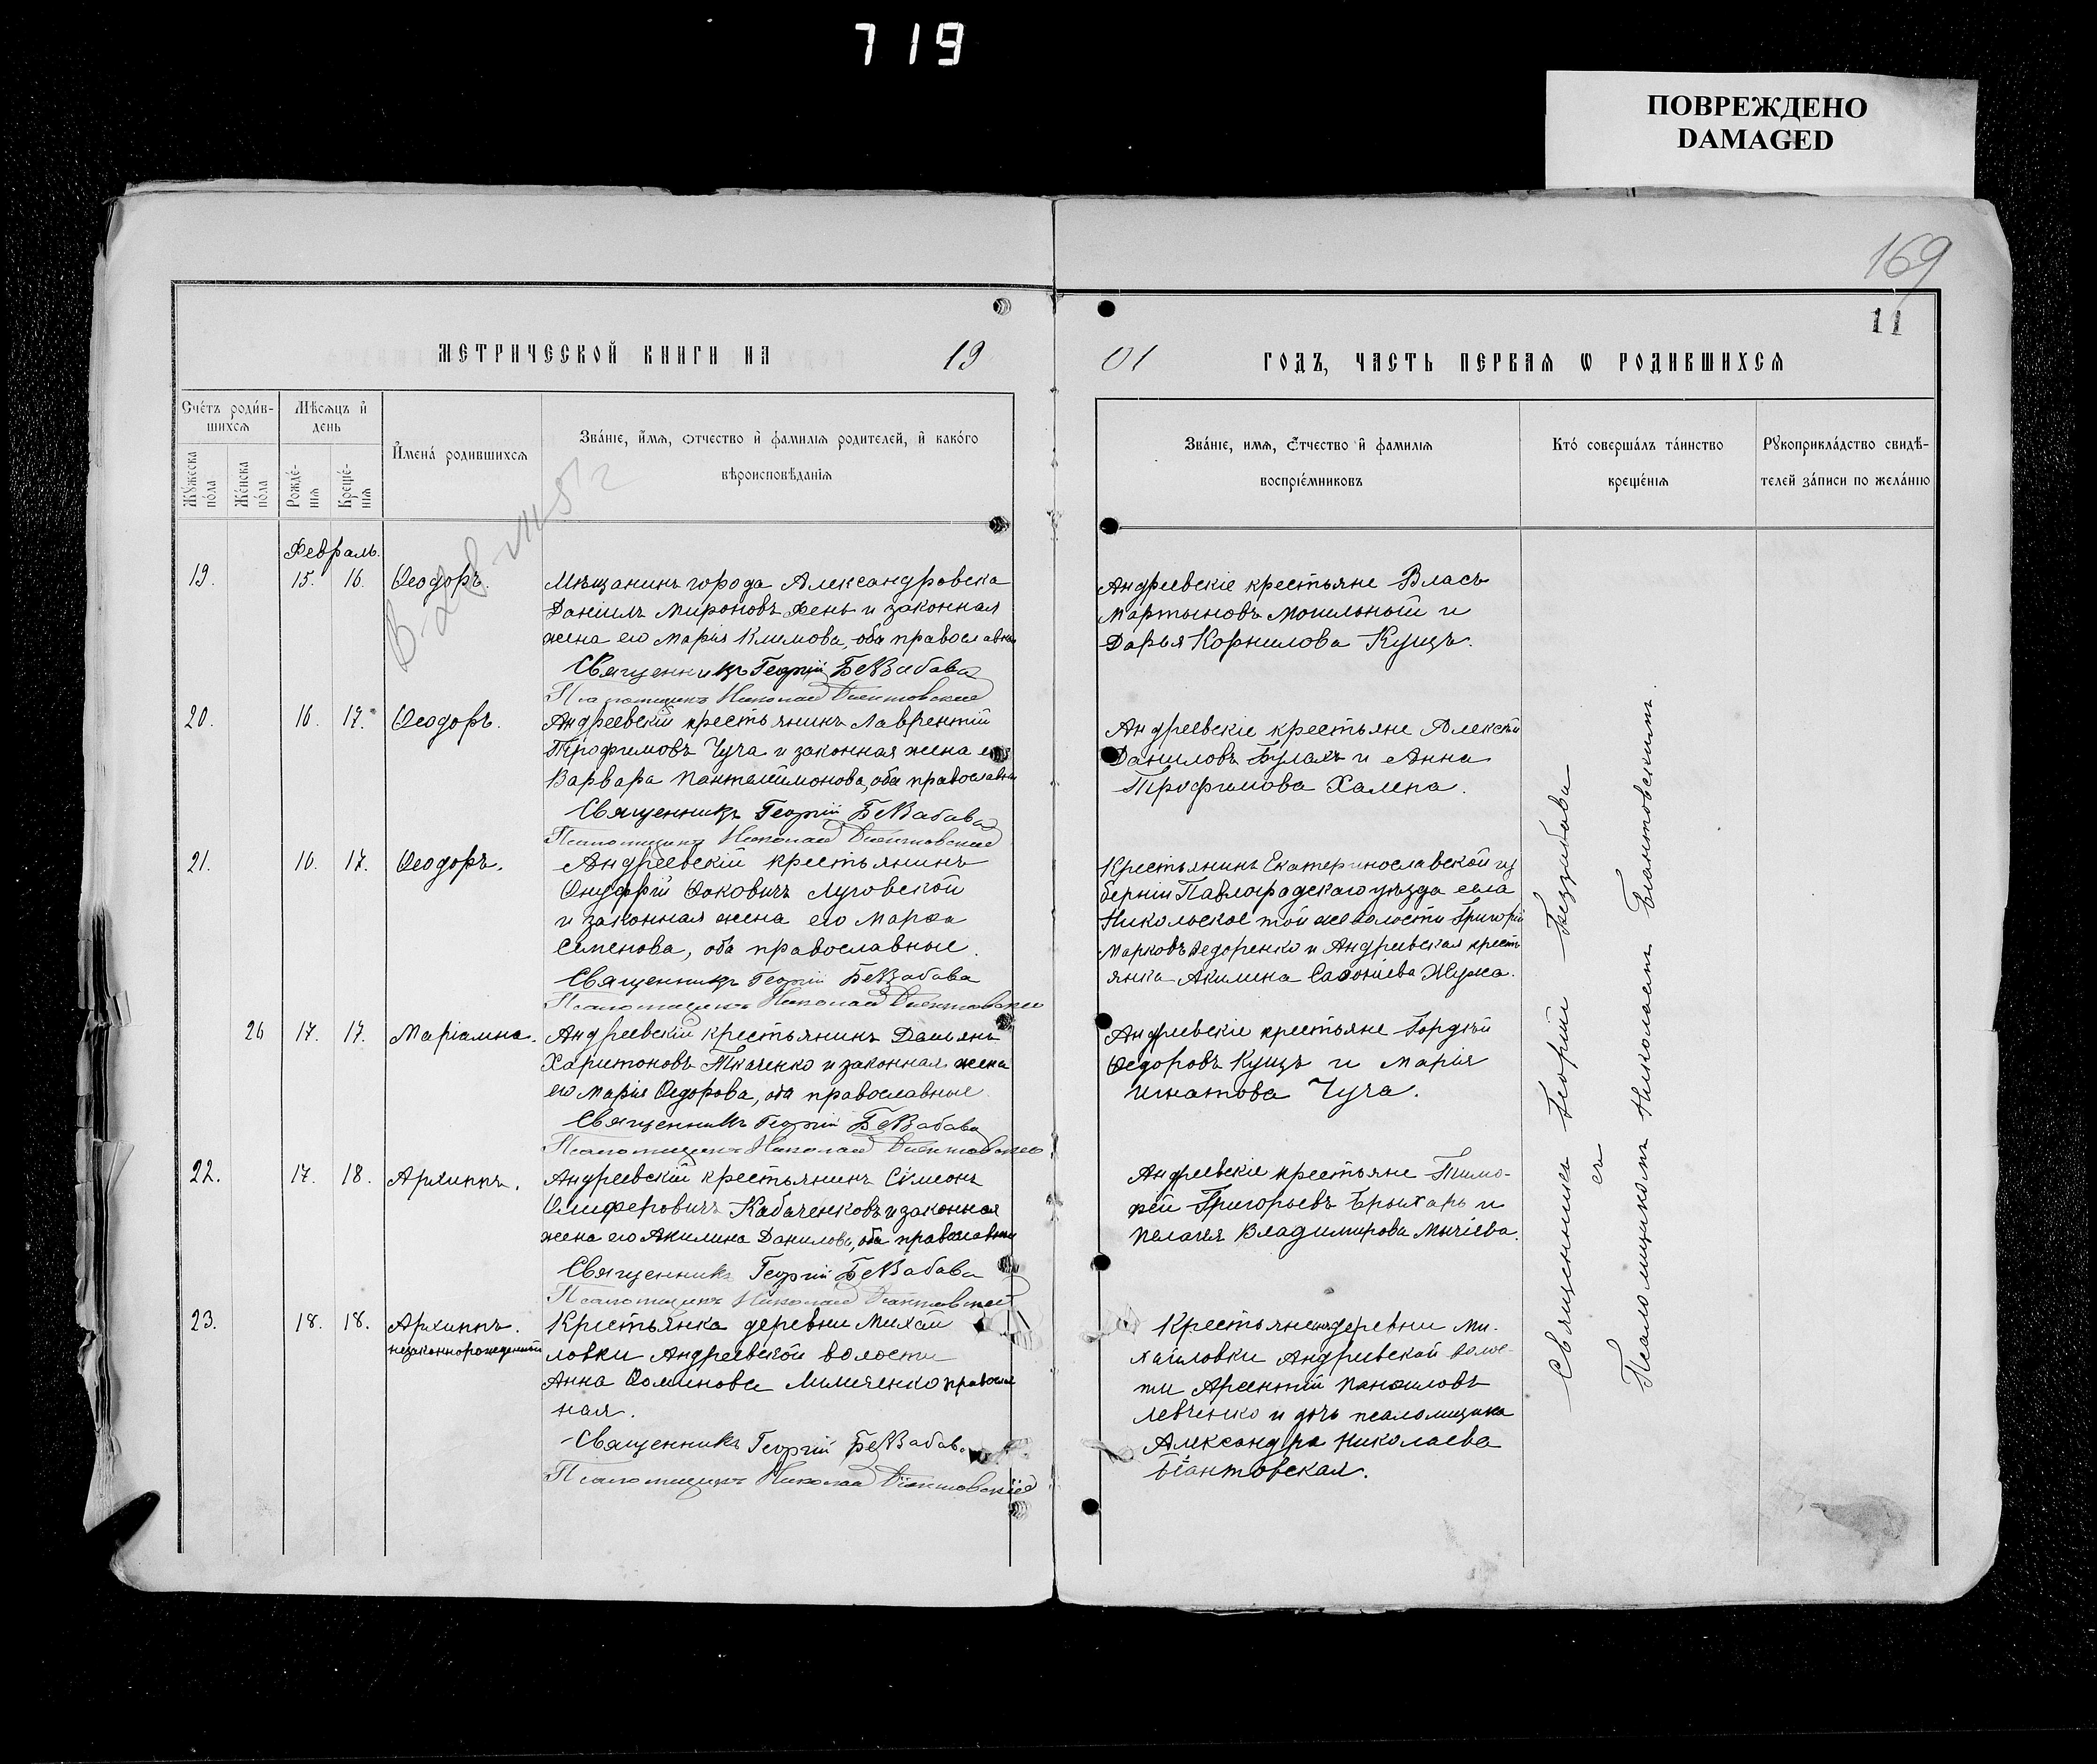 719
ПОВРЕЖДЕНО
DAMAGED
169
11
МЕТРИЧЕСКОЙ КНИГИ НА 19
01 ГОДЪ, ЧАСТЬ ПЕРВАЯ Ѡ РОДИВШИХСЯ
Счетъ родив-
шихся
Мѣсяцъ и
день
Мужеска
пола
Женска
пола
Рожде-
нія
Креще-
нія
Имена родившихся
Званіе, имя, отчество и фамилія родителей, и какого
вѣроисповѣданія
Званіе, имя, отчество и фамилія
воспріемниковъ
Кто совершалъ таинство
крещенія
Рукоприкладство свидѣ-
телей записи по желанію
Февраль.
19. 15. 16. Ѳеодоръ.
Мѣщанинъ города Александровска
Даніилъ Мироновъ Фень и законная
жена его Марія Климова, оба православные
Священникъ Георгій Беззабава
Псаломщикъ Николай Біантовскій
Андреевскіе крестьяне Власъ
Мартыновъ Могильный и
Дарья Корнилова Кущъ.
20. 16. 17. Ѳеодоръ.
Андреевскій крестьянинъ Лаврентій
Трофимовъ Чуча и законная жена его
Варвара Пантелиимонова, оба православные
Священникъ Георгій Беззабава
Псаломщикъ Николай Біантовскій
Андреевскіе крестьяне Алексѣй
Даниловъ Булахъ и Анна
Трофимова Халепа.
21. 16. 17. Ѳеодоръ.
Андреевскій крестьянинъ
Онуфрій Ѳоковичъ Луговской
и законная жена его Марѳа
Семенова, оба православные.
Священникъ Георгій Беззабава
Псаломщикъ Николай Біантовскій
Крестьянинъ Екатеринославской гу
берніи Павлоградскаго уѣзда села
Никольское той же волости Григорій
Марковъ Ѳедоренко и Андреевская кресть
янка Акилина Савоніева Жужа.
26 17. 17. Маріамна.
Андреевскій крестьянинъ Даміянъ
Харитоновъ Ткаченко и законная жена
его Марія Ѳедорова, оба православные
Священникъ Георгій Беззабава
Псаломщикъ Николай Біантовскій
Андреевскіе крестьяне Гордѣй
Ѳедоровъ Кущъ и Марія
Игнатова Чуча.
22. 17. 18. Архиппъ.
Андреевскій крестьянинъ Сѵмеонъ
Олиферовичъ Кабаченковъ и законная
жена его Акилина Данилова, оба православные
Священникъ Георгій Беззабава
Псаломщикъ Николай Біантовскій
Андреевскіе крестьяне Тимо-
ѳей Григорьевъ Брыхарь и
Пелагея Владимирова
23. 18. 18. Архиппъ.
незаконнорожденный
Крестьянка деревни Михай
ловки Андреевской волости
Анна Ѳоминова православ
ная.
Священникъ Георгій Беззабава
Псаломщикъ Николай Біантовскій
Крестьянинъ деревни Ми-
хайловки Андреевской волос-
ти Арсентій Панфиловъ
Левченко и дочь псаломщика
Александра Николаева
Біантовская.
Священникъ Георгій Беззабава
съ
Псаломщикомъ Николаемъ Біантовскимъ.